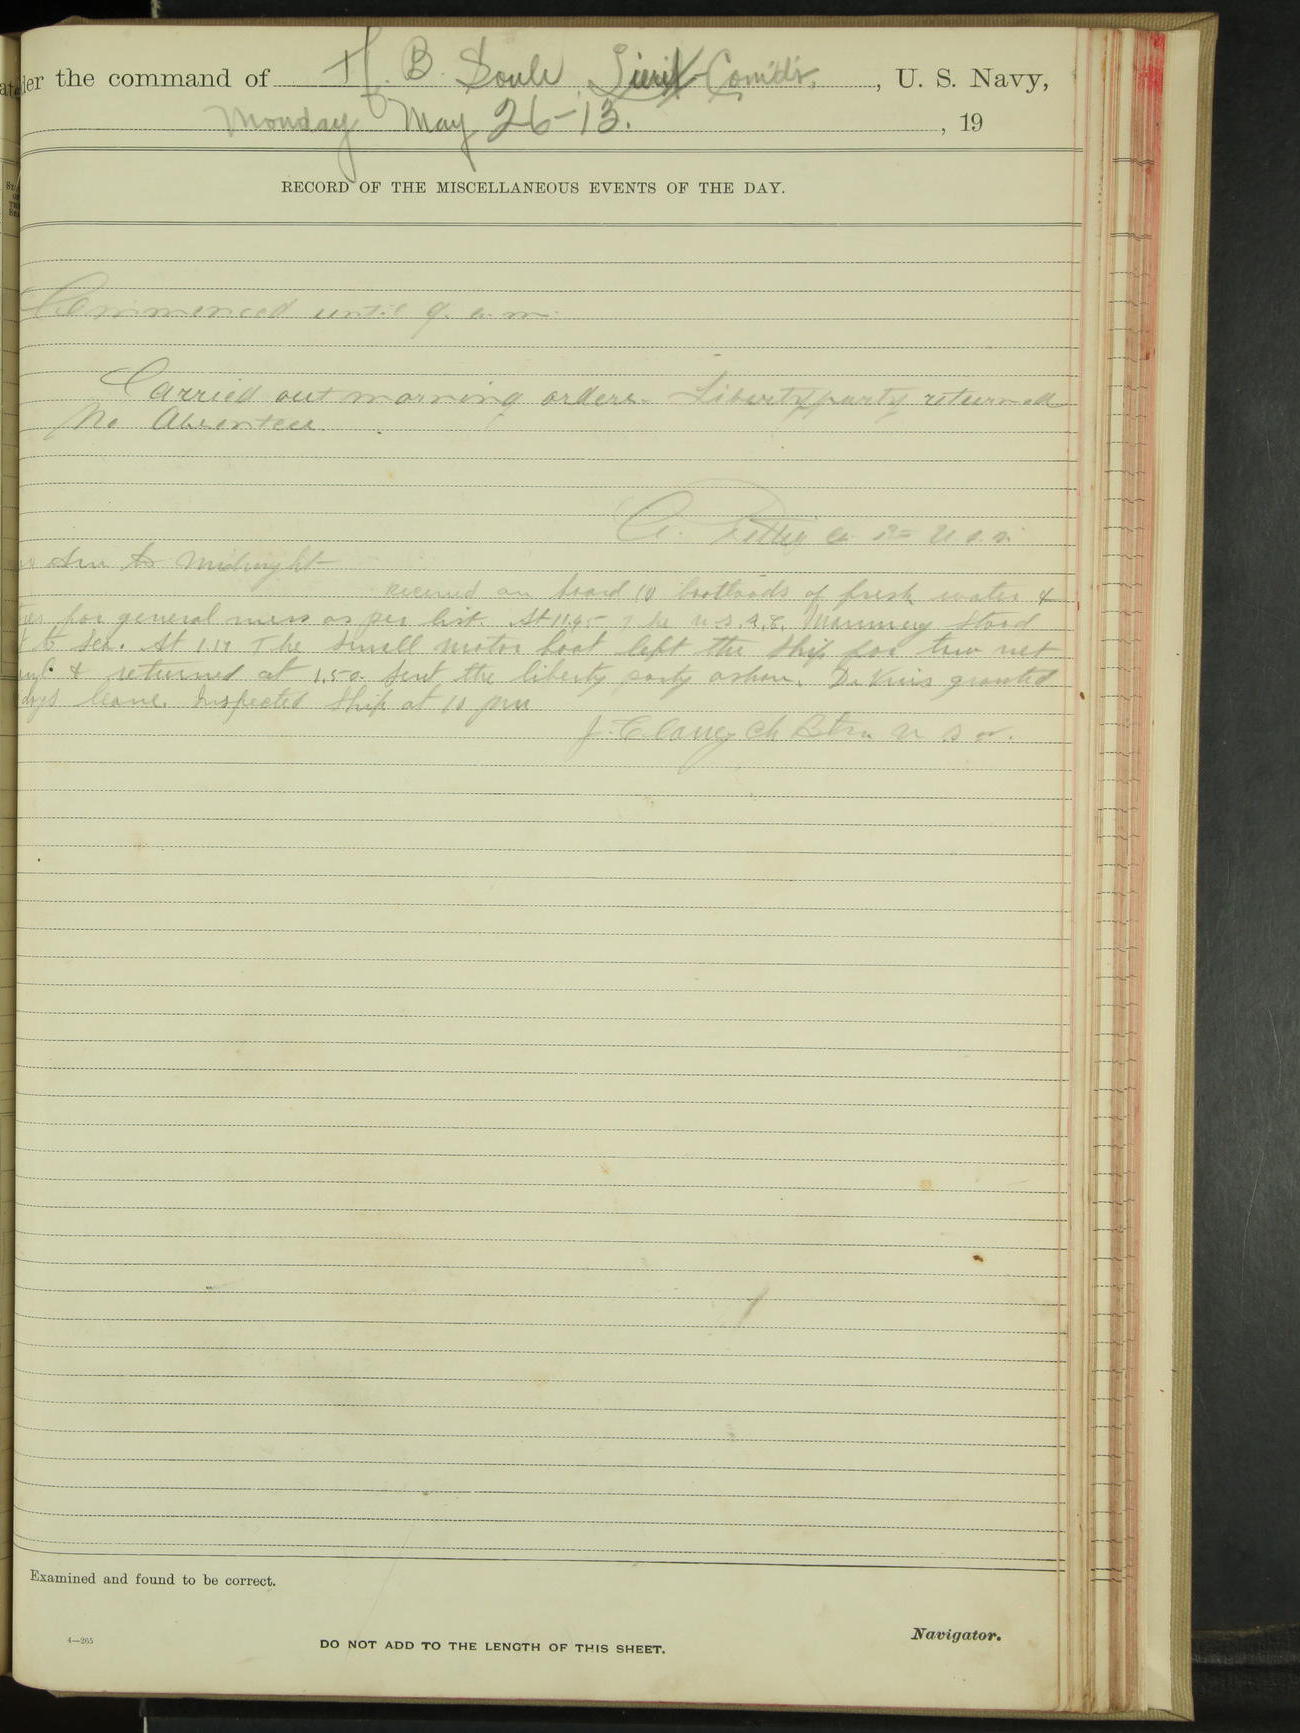 der the command of H. B. Soule, Lieut-Comd'r, U. S. Navy,
Monday May 26-13. , 19
RECORD OF THE MISCELLANEOUS EVENTS OF THE DAY.
Commenced until 9. a. m.
Carried out morning orders. Liberty party returned
No Absentees.
to Midnight
Received on board 10 boatloads of fresh water &
for general mess as per list. At 11.45 The U.S.A.S. stood
to Sea. At 1.10 The Small motor boat left the Ship for
& returned at 1.50. Sent the liberty party ashore. granted
days leave. Inspected Ship at 10 pm
J. Clancy Ch Btsn U S N.
Examined and found to be correct.
4—265
DO NOT ADD TO THE LENGTH OF THIS SHEET.
Navigator.